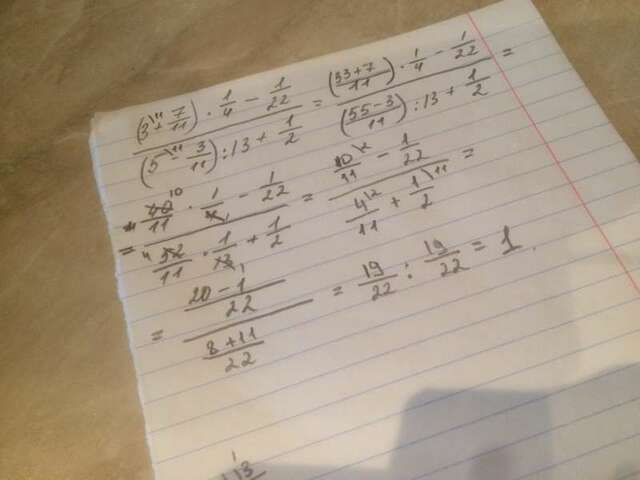 ((3 + 7/11) · 1/4 − 1/22) / ((5 − 3/11) : 13 + 1/2) = (((33+7)/11) · 1/4 − 1/22) / (((55−3)/11) : 13 + 1/2) =
= (40/11 · 1/4 − 1/22) / (52/11 · 1/13 + 1/2) = (10/11 − 1/22) / (4/11 + 1/2) =
= ((20−1)/22) / ((8+11)/22) = 19/22 : 19/22 = 1